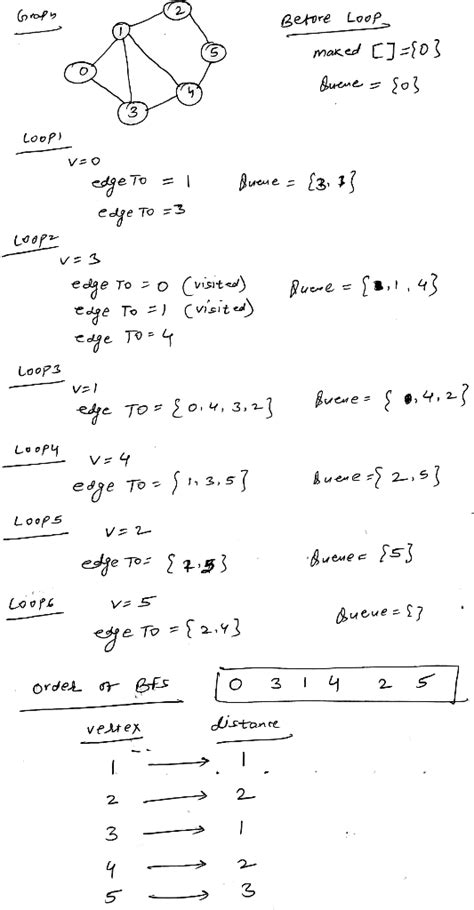 Graph
2
1
5
0
4
3
Before Loop
maked [] = {0}
Queue = {0}
Loop1
v=0
edge To = 1 Queue = {3, 1}
edge To = 3
Loop2
v = 3
edge To = 0 (visited) Queue = { , 1, 4}
edge To = 1 (visited)
edge To = 4
Loop3
v=1
edge To = {0, 4, 3, 2} Queue = { , 4, 2}
Loop4
v = 4
edge To = {1, 3, 5} Queue = { 2, 5}
Loop5
v = 2
edge To = {1, 5} Queue = {5}
Loop6
v = 5
edge To = {2, 4} Queue = {}
order of BFS 0 3 1 4 2 5
vertex distance
1 → 1
2 → 2
3 → 1
4 → 2
5 → 3